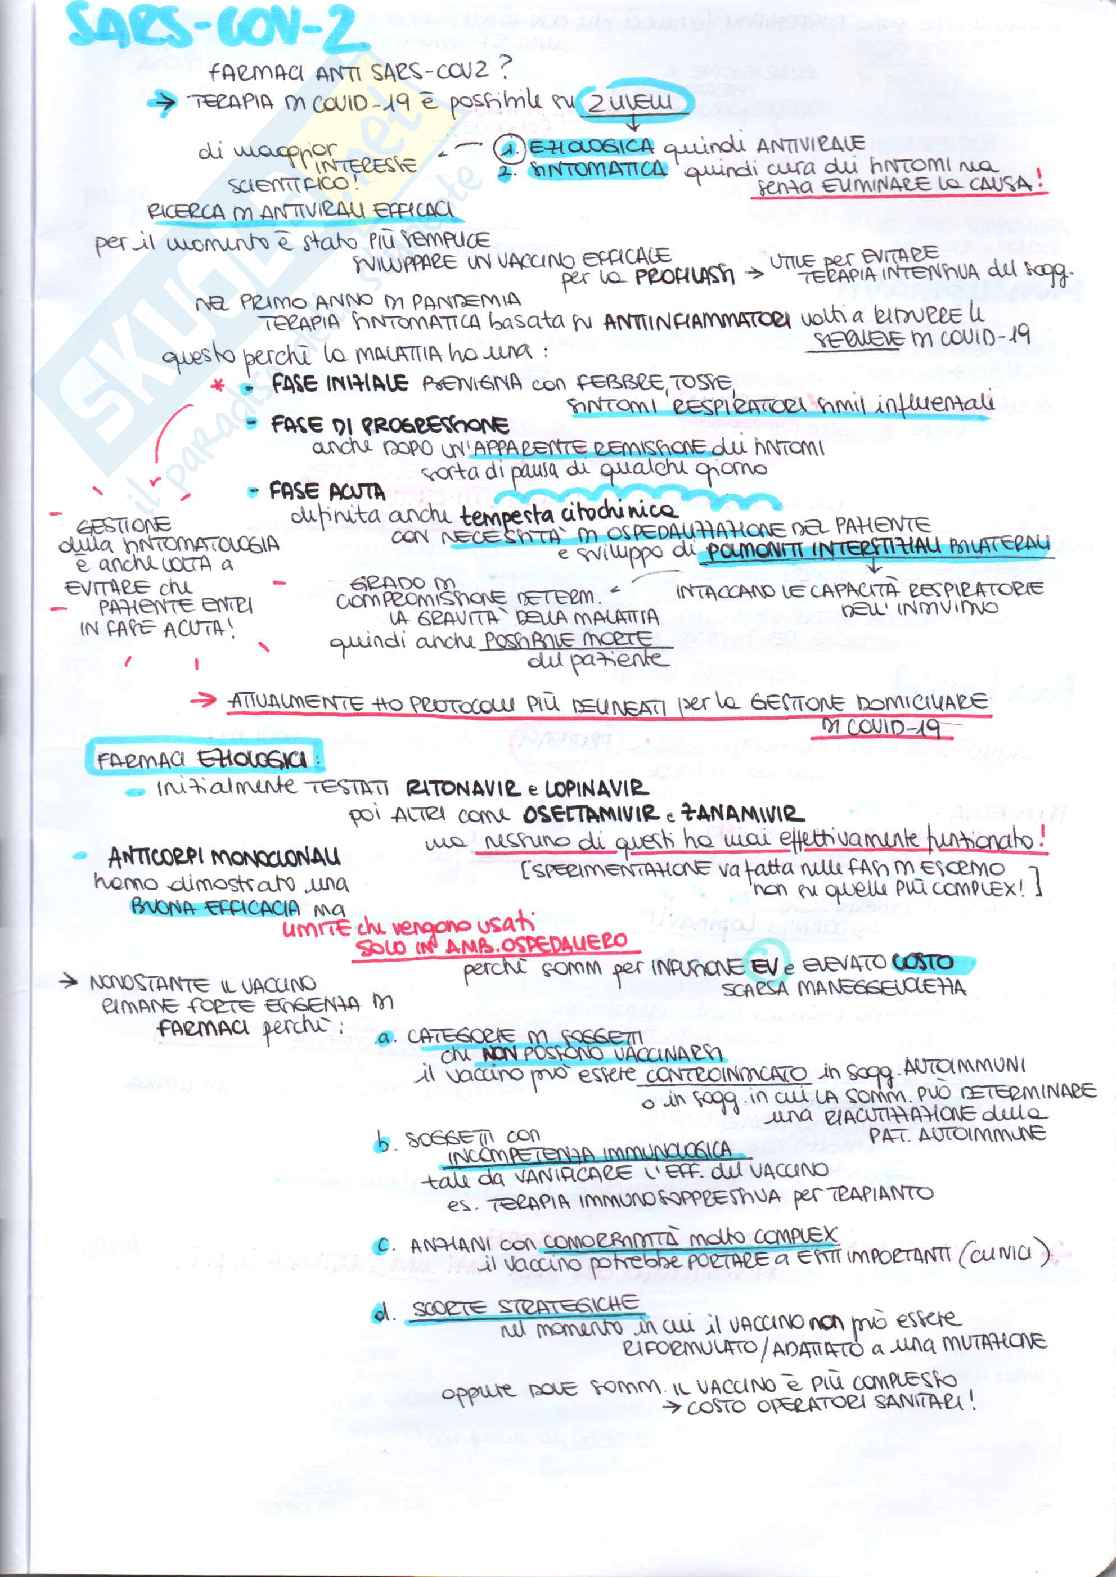 SARS-COV-2
FARMACI ANTI SARS-COV2?
→ TERAPIA DI COVID-19 è possibile su 2 LIVELLI
1. EZIOLOGICA quindi ANTIVIRALE
2. SINTOMATICA quindi cura dei SINTOMI ma
senza ELIMINARE la CAUSA!
di maggior
INTERESSE
SCIENTIFICO!
RICERCA DI ANTIVIRALI EFFICACI
per il momento è stato PIÙ SEMPLICE
SVILUPPARE UN VACCINO EFFICACE
per la PROFILASSI → UTILE per EVITARE
TERAPIA INTENSIVA del sogg.
NEL PRIMO ANNO DI PANDEMIA
TERAPIA SINTOMATICA basata su ANTIINFIAMMATORI volti a RIDURRE le
SEQUELE DI COVID-19
questo perchè la MALATTIA ha una:
* - FASE INIZIALE BENIGNA con FEBBRE, TOSSE,
SINTOMI RESPIRATORI simil influenzali
- FASE DI PROGRESSIONE
anche DOPO UN'APPARENTE REMISSIONE dei SINTOMI
sorta di pausa di qualche giorno
- FASE ACUTA
definita anche tempesta citochinica
CON NECESSITÀ DI OSPEDALIZZAZIONE DEL PAZIENTE
e sviluppo di POLMONITI INTERSTIZIALI BILATERALI
INTACCANO LE CAPACITÀ RESPIRATORIE
DELL'INDIVIDUO
GRADO DI
COMPROMISSIONE DETERM.
LA GRAVITÀ DELLA MALATTIA
quindi anche POSSIBILE MORTE
del paziente
GESTIONE
della SINTOMATOLOGIA
è anche VOLTA a
EVITARE che
PAZIENTE ENTRI
IN FASE ACUTA!
→ ATTUALMENTE HO PROTOCOLLI PIÙ DELINEATI per la GESTIONE DOMICILIARE
DI COVID-19
FARMACI EZIOLOGICI:
- inizialmente TESTATI RITONAVIR e LOPINAVIR
poi ALTRI come OSELTAMIVIR e ZANAMIVIR
ma nessuno di questi ha mai effettivamente funzionato!
[SPERIMENTAZIONE va fatta nelle FASI DI ESORDIO
non su quelle PIÙ COMPLEX!]
- ANTICORPI MONOCLONALI
hanno dimostrato una
BUONA EFFICACIA ma
LIMITE che vengono usati
SOLO IN AMB. OSPEDALIERO
perchè somm per INFUSIONE EV e ELEVATO COSTO
SCARSA MANEGGEVOLEZZA
→ NONOSTANTE IL VACCINO
RIMANE FORTE ESIGENZA DI
FARMACI perchè:
a. CATEGORIE DI SOGGETTI
che NON POSSONO VACCINARSI
il vaccino può essere CONTROINDICATO in sogg. AUTOIMMUNI
o in sogg. in cui LA SOMM. PUÒ DETERMINARE
una RIACUTIZZAZIONE della
PAT. AUTOIMMUNE
b. SOGGETTI con
INCOMPETENZA IMMUNOLOGICA
tale da VANIFICARE L'EFF. del VACCINO
es. TERAPIA IMMUNOSOPPRESSIVA per TRAPIANTO
c. ANZIANI con COMORBIDITÀ molto COMPLEX
il vaccino potrebbe PORTARE a ESITI IMPORTANTI (CLINICI)
d. SCORTE STRATEGICHE
nel momento in cui il VACCINO non può essere
RIFORMULATO/ADATTATO a una MUTAZIONE
oppure DOVE SOMM. IL VACCINO È PIÙ COMPLESSO
→ COSTO OPERATORI SANITARI!